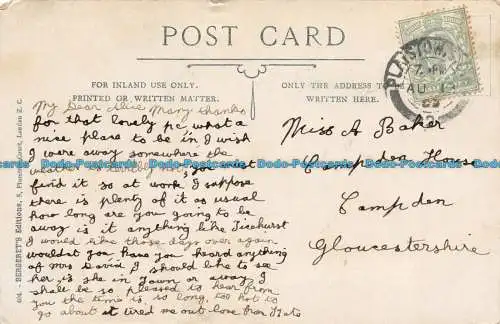 POST CARD
FOR INLAND USE ONLY.
PRINTED OR WRITTEN MATTER.
ONLY THE ADDRESS TO BE
WRITTEN HERE.
PLAISTOW
AU
My Dear Alice Many thanks
for that lovely pc what a
nice place to be in I wish
I were away somewhere
weather is lovely you must
find it so at work I suppose
there is plenty of it as usual
how long are you going to be
away is it anything like Ticehurst
I would like those days over again
wouldn't you have you heard anything
of Mrs David I should like to see
her is she in town or away I
shall be so pleased to hear from
you the time is so long, too hot to
go about it tired me out love from Kate
Miss A Baker
Campden House
Campden
Gloucestershire
BERGERET'S Editions, 5, Court, London E.C.
Postcards